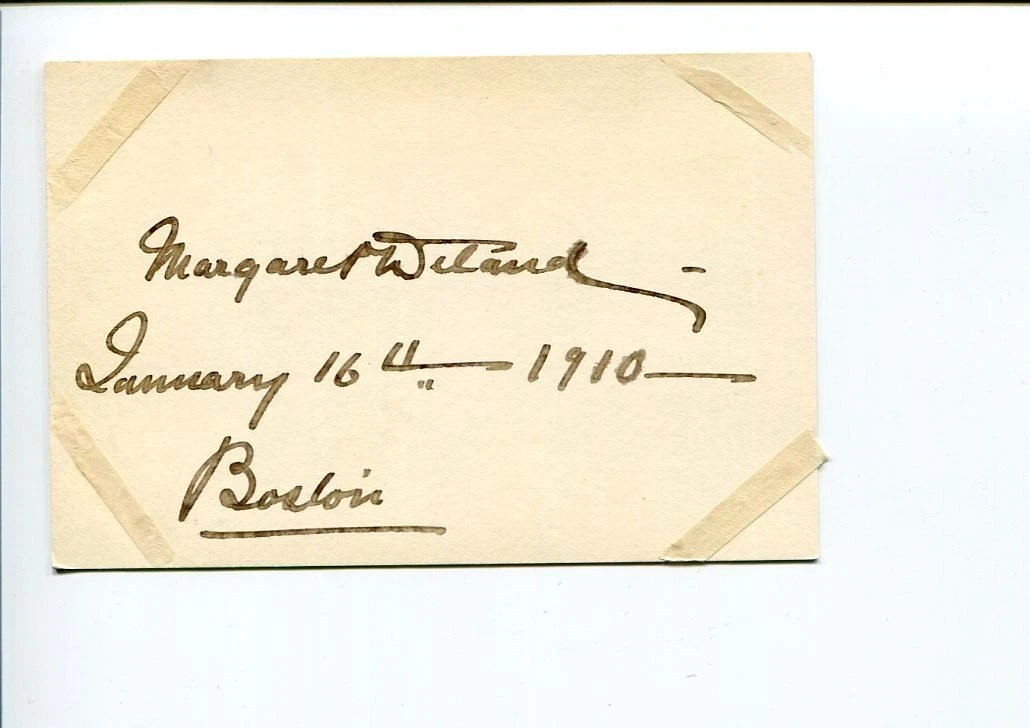 Margaret Deland -
January 16th 1910
Boston